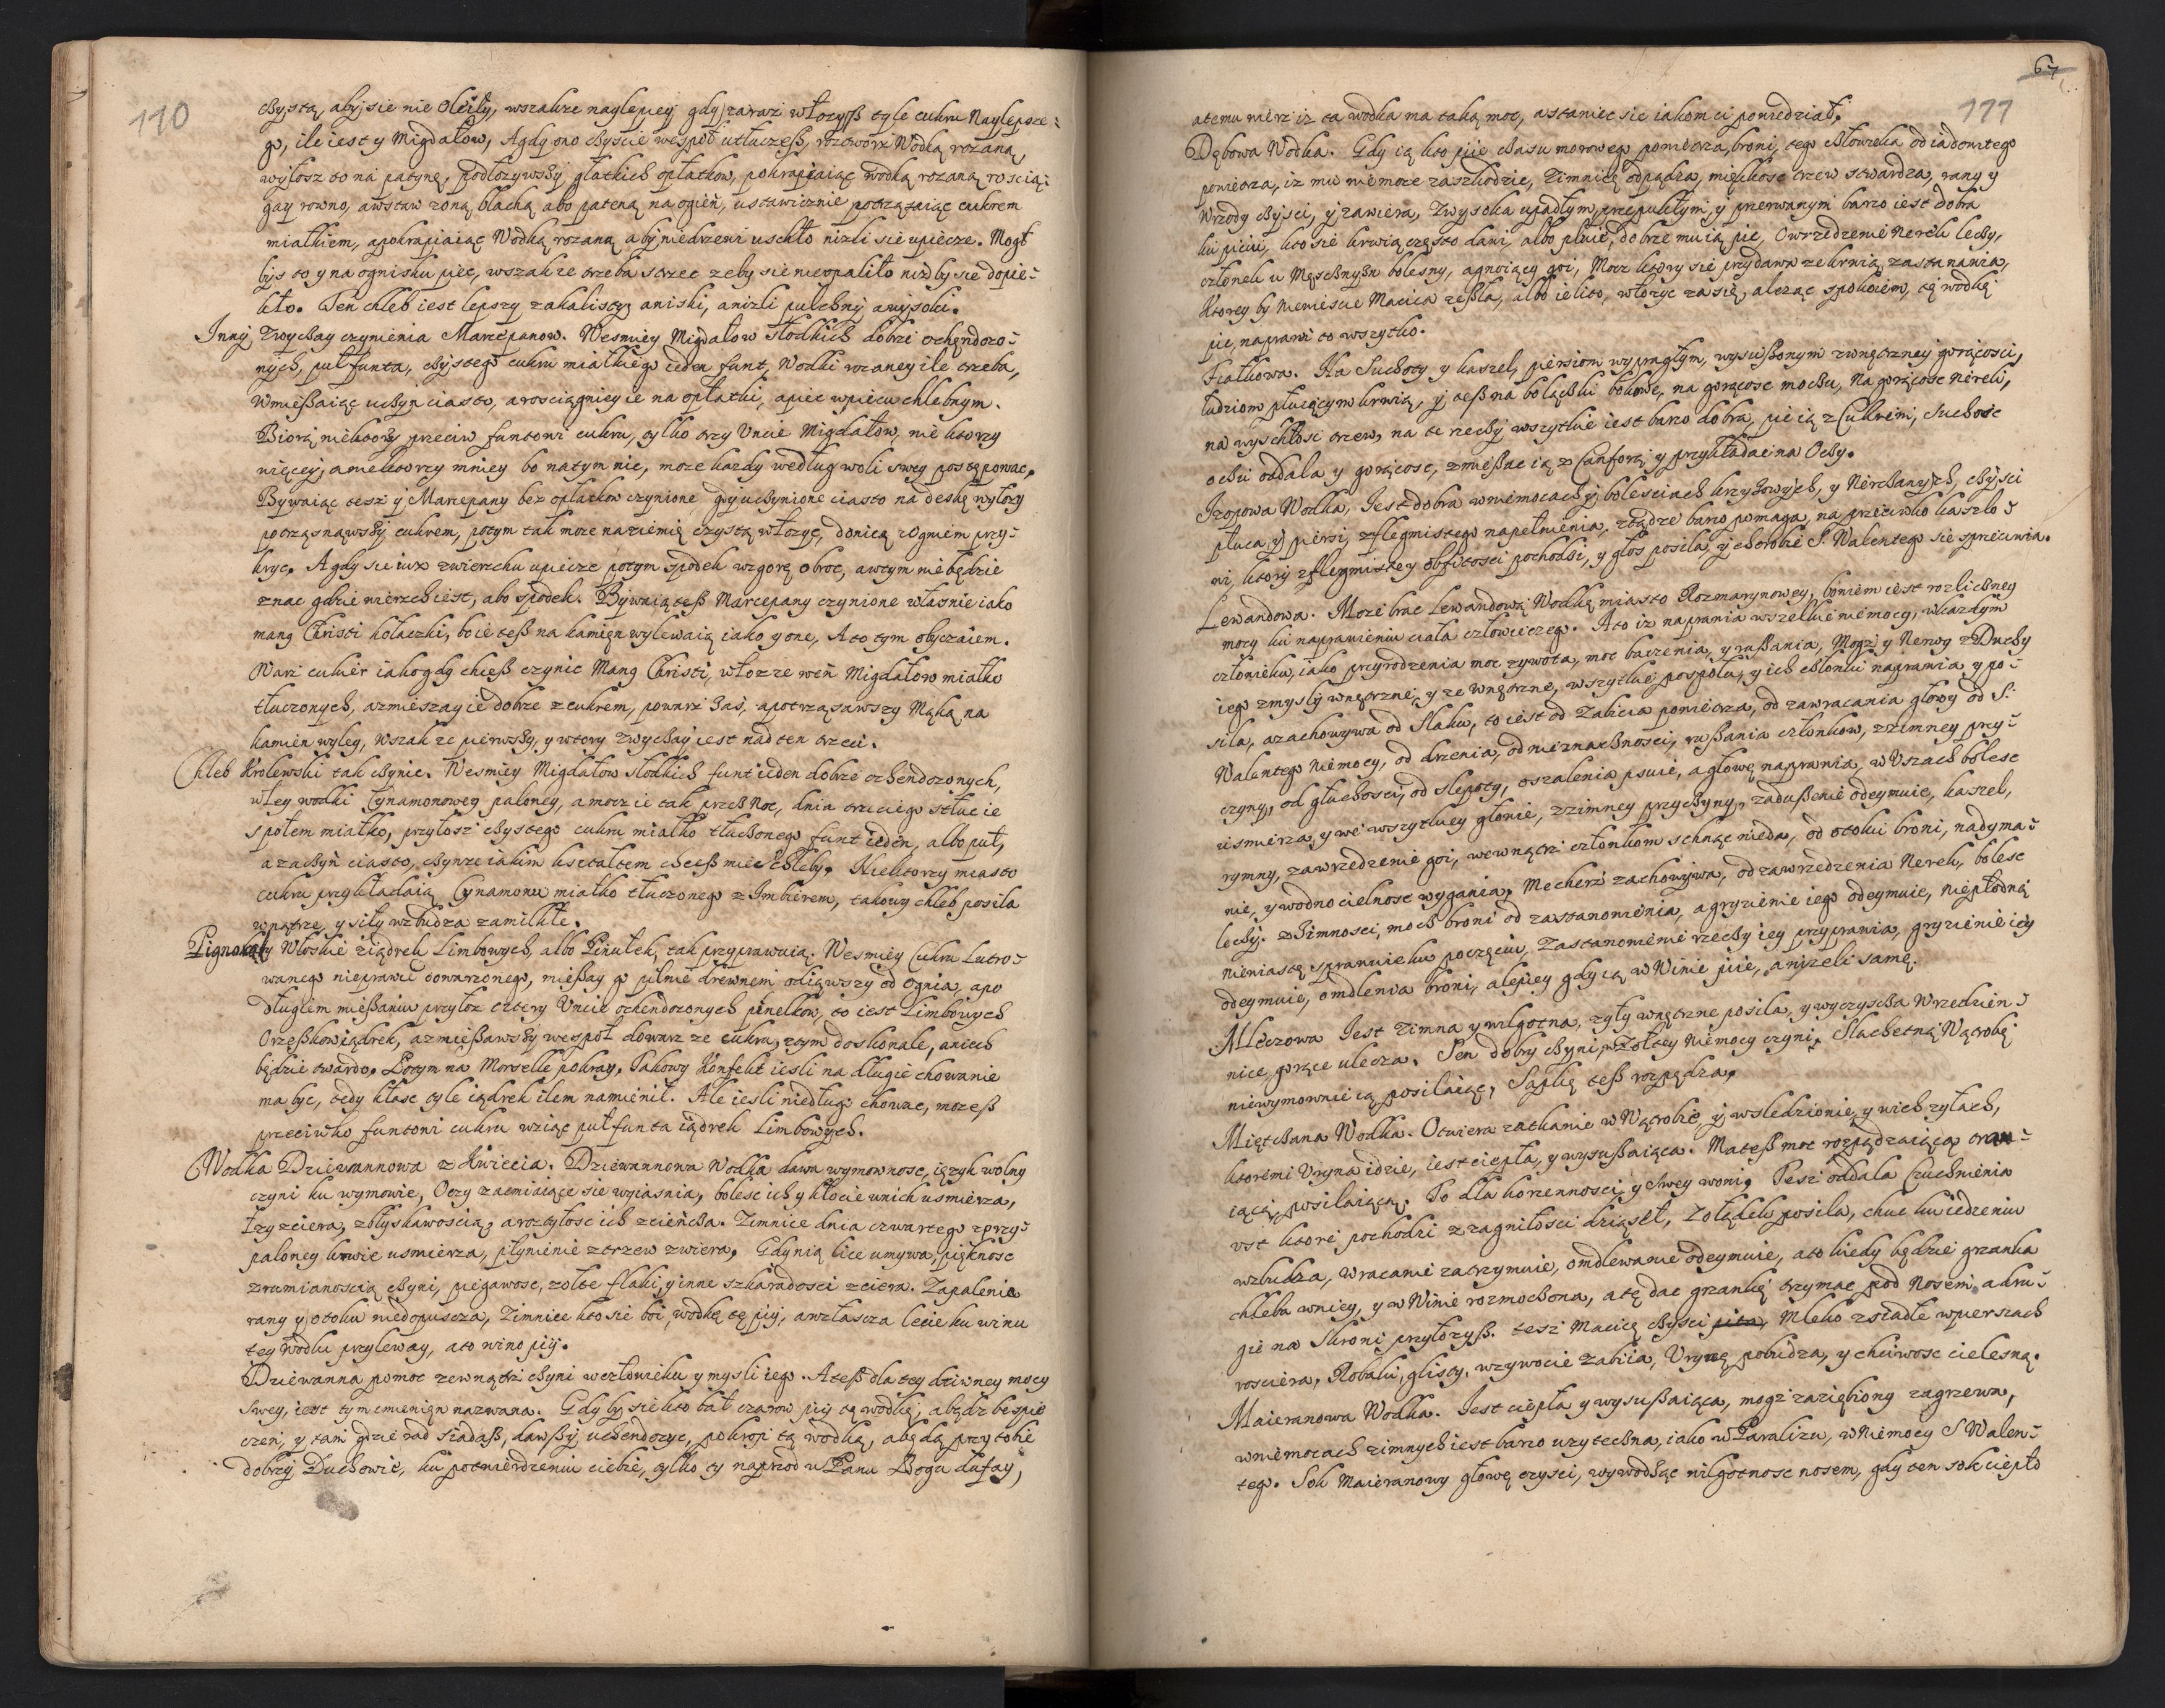 110
cżystą, aby sie nie Oleiły, wszakże naylepiey gdy zaraz włożyß tyle cukru Naylepsze=
go, ile iest y Migdałow, A gdy ono cżyście wespoł utłuczeß, roztworz Wodką rożaną,
wyłosz to na patynę, podłożywßy głatkich opłatkow, pokrapiaiąc wodką rożaną rością=
gay rowno, a wstaw z oną blachą abo pateną na ogień, ustawicznie potrząsaiąc cukrem
miałkiem, a pokrapiaiąc Wodką rożaną aby nie drzeni uschło niżli sie upiecze. Mogł
byś to y na ognisku piec, wszakże trzeba strzec żeby sie nie opaliło niż by sie dopie=
kło. Ten chleb iest lepszy zakalisty aniski, aniżli pulchny a wysoki.
Inny Zwycżay czynienia Marcepanow. Wesmiey Migdałow słodkich dobrze ochędożo=
nych, puł funta, cżystego cukru miałkiego ieden funt, Wodki rożaney ile trzeba,
Wmießaiąc ucżyń ciasto, a rościągniey ie na opłatki, a piec w piecu chlebnym.
Biorą niektorzy przeciw funtowi cukru, tylko trzy Uncie Migdałow, niektorzy
więcey, a niektorzy mniey bo na tym nic, może każdy według woli swey postępować.
Bywaiąc tesz y Marcepany bez opłatkow czynione gdy ucżynione ciasto na deskę wyłoży
potrząsnąwßy cukrem, potym tak może na ziemię czystą włożyć, donicą z Ogniem przy=
kryć. A gdy sie iuż zwierzchu upiecze potym spodek wzgorę obroc, a w tym nie będzie
znac gdzie wierzch iest, abo spodek. Bywaią teß Marcepany czynione własnie iako
mang Christi kołaczki, bo ie teß na kamień wylewaią iako y one, A to tym obyczaiem.
Warz cukier iako gdy chceß czynic Mang Christi, włoż ze weń Migdałow miałko
tłuczonych, a zmieszay ie dobrze z cukrem, powarz zaś, a potrząsawszy Mąką na
kamień wyley, Wszakże pierwßy y wtory zwycżay iest nad ten trzeci.
Chleb Krolewski tak cżynic. Wesmiey Migdałow słodkich funt ieden dobrze ochendożonych,
wley wodki Cynamonowey paloney, a mocz ie tak przez Noc, dnia trzeciego stłuc ie
społem miałko, przyłosz cżystego cukru miałko tłucżonego funt ieden, albo puł,
a zacżyń ciasto, cżynże iakim kształtem chceß miec chleby. Niektorzy miasto
cukru przykładaią Cynamonu miałko tłuczonego z Imbierem, takowy chleb posila
wnątrze, y siły wzbudza zamilkłe.
Pignokaty Włoskie z iądrek Limbowych, albo Pinułek, tak przyprawuią. Wesmiey Cukru Lutro=
wanego nieprawie dowarzonego, mießay go pilnie drewnem odiąwszy od Ognia, a po
długiem mießaniu przyłoż cztery Uncie ochendożonych pinelkow, to iest Limbowych
Orzeßkow iądrek, a zmießawßy wespoł dowarz ze cukru, z tym doskonale, a niech
będzie twardo. Potym na Morselle pokray. Takowy Konfekt iesli na długie chowanie
ma byc, tedy kłasc tyle iądrek ilem namienił. Ale iesli niedługo chowac, możeß
przeciwko funtowi cukru wziąc puł funta iądrek Limbowych.
Wodka Dziewannowa z Kwiecia. Dziewannowa Wodka dawa wymownosc, ięzyk wolny
czyni ku wymowie, Oczy zacmiaiące sie wyiasnia, bolesc ich y kłocie w nich usmierza,
łzy zciera, z błyskawością, a roztyłosc ich zciencża. Zimnice dnia czwartego z przy=
paloney krwie usmierza, płynienie z trzew zwiera. Gdy nią lice umywa, pięknosc
z rumianoscią cżyni, piegawosc, żołte flaki, y inne szkaradosci zciera. Zapalenia
rany y otoku nie dopuscza, Zimnice kto sie boi, wodkę tę piy, a zwłascza lecie ku winu
tey wodki przyleway, a to wino piy.
Dziewanna pomoc zewnątrz cżyni w człowieku y mysli iego. A teß dla tey dziwney mocy
swey, iest tym imieniem nazwana. Gdy by sie kto bał czarow piy tę wodkę, a będź bespie
czen, y tam gdzie rad siadaß, dawßy uchendożyc, pokropi tą wodką, a będą przy tobie
dobrzy Duchowie, ku potwierdzeniu ciebie, tylko ty naprzod w Panu Bogu dufay,
67
111
a temu wierz iż ta wodka ma taką moc, a stanie sie iakom ci powiedział.
Dębowa Wodka. Gdy ią kto piie cżasu morowego powietrza, broni tego cżłowieka od iadowitego
powietrza, iż mu nie może zaszkodzic, Zimnicę odpądza, miękkosc trzew stwardza, rany y
Wrzody cżysci, y zawiera, Zwysoka upadłym, przepukłym, y przerwanym barzo iest dobra
ku piciu, kto sie krwią często dawi, albo pluie, dobrze mu ią pic, Owrzedzenie Nerek lecży,
członek u Męscżyzn bolesny, a gnoiący goi, Mocz ktory sie przydawa ze krwią zastanawia,
Ktorey by Niewiescie Macica zeßła, albo ielito, włożyc za się, a leżąc spokoiem, tę wodkę
pic, naprawi to wszytko.
Fiałkowa. Na Suchoty y kaszel, piersiom wypragłym, wysußonym z wnętrzney gorącosci,
ludziom plucącym krwią, y teß na bolącżki bokowe, na gorącosc mocżu, na gorącosc Nerek,
na wyschłosc trzew, na te rzecży wszytkie iest barzo dobra, pic ią z Cukrem, Suchosc
ocżu oddala y gorącosc, zmießac ią z Canforą y przykładac na Ocży.
Izopowa Wodka, Iest dobra w niemocach y bolesciach krzyżowych, y Nerchanych, cżysci
płuca, y piersi, z flegmistego napełnienia, zkądże barzo pomaga, na przeciwko kaszlo=
wi, ktory z flegmistey obfitosci pochodzi, y głos posila, y chorobie S. Walentego sie sprzeciwia.
Lewandowa. Może brac Lewandową Wodkę miasto Rozmarynowey, bowiem iest rozlicżney
mocy ku naprawieniu ciała człowieczego. A to iż naprawia wszelkie niemocy, w każdym
człowieku, iako przyrodzenia moc żywota, moc baczenia, y rußania, Mozg y Nerwy z Duchy
iego zmysly wnętrzne, y zewnętrzne, wszytkie pospołu, y ich członki naprawia y po=
sila, a zachowywa od Slaku, to iest od Zabicia powietrza, od zawracania głowy od S.
Walentego Niemocy, od drzenia, od nieznacżnosci, rußania członkow, z zimney przy=
czyny, od głuchosci, od slepoty, oszalenia psuie, a głowę naprawia, w Uszach bolesc
usmierza, y we wszytkiey głowie, z zimney przycżyny, zadußenie odeymuie, kaszel,
rymny, zawrzedzenie goi, wewnątrz członkom schnąc nieda, od otoku broni, nadyma=
nie, y wodno cielnosc wygania, Mecherz zachowywa, od zawrzedzenia Nerek, bolesc
lecży. z Zimnosci, mocż broni od zastanowienia, a gryzienie iego odeymuie, Niepłodną
niewiastę sprawuie ku poczęciu, Zastanowienie rzecży iey przyprawia, gryzienie iey
odeymuie, omdlenia broni, a lepiey gdy ią w Winie piie, aniżeli samę.
Mleczowa Iest Zimna y wilgotna, żyły wnętrzne posila, y wyczyscża Wrzedzien=
nice, gorące ulecza. Sen dobry cżyni, w żołtey Niemocy czyni. Slachetną Wątrobę
niewymownie ią posilaiąc, Sapkę teß rozpądza.
Miętcżana Wodka. Otwiera zatkanie w Wątrobie, y w sledzionie, y w ich żyłach,
ktoremi Uryna idzie, iest ciepła, y wysußaiąca. Ma teß moc rozpądzaiącą traw=
iącą, posilaiącą. To dla korzennosci, y swey woni. Tesz oddala Cuchnienia
ust ktore pochodzi z zagniłosci dziąseł, Zołądek posila, chuc ku iedzeniu
wzbudza, wracanie zatrzymuie, omdlewanie odeymuie, a to kiedy będzie grzanka
chleba w niey, y w Winie rozmocżona, a tę dac grzankę trzymac pod Nosem, a dru=
gie na Skroni przyłożyß. tesz Macicę cżysci, Mleko zsiadłe w piersiach
rosciera, Robaki, glisty, w żywocie zabiia, Urynę pobudza, y chciwosc cielesną.
Maieranowa Wodka. Iest ciepła y wysußaiąca, mozg zaziębiony zagrzewa,
w niemocach zimnych iest barzo użytecżna, iako w Paraliżu, w Niemocy S Walen=
tego. Sok Maieranowy głowę czysci, wywodżąc wilgotnosc nosem, gdy ten sok ciepło